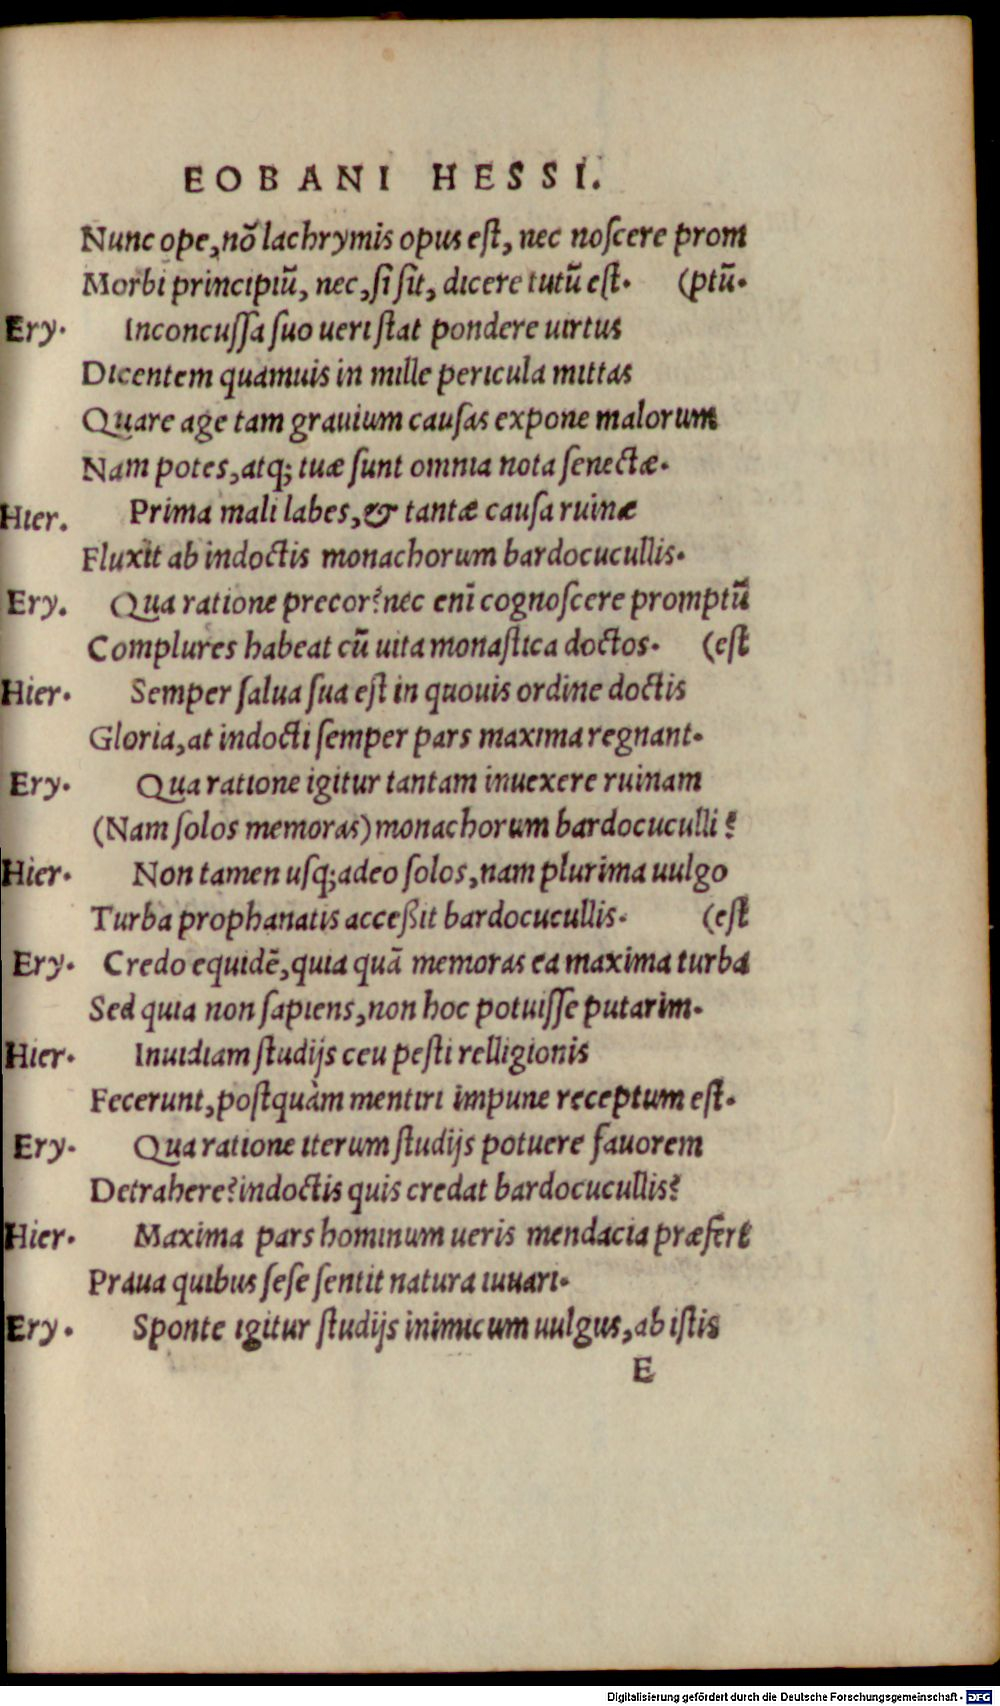 EOBANI HESSI.
Nunc ope, nõ lachrymis opus eſt, nec noſcere prom
Morbi principiũ, nec, ſi ſit, dicere tutũ eſt. (ptũ.
Ery. Inconcuſſa ſuo ueri ſtat pondere uirtus
Dicentem quamuis in mille pericula mittas
Quare age tam grauium cauſas expone malorum
Nam potes, atq; tuæ ſunt omnia nota ſenectæ.
Hier. Prima mali labes, & tantæ cauſa ruinæ
Fluxit ab indoctis monachorum bardocucullis.
Ery. Qua ratione precor? nec enĩ cognoſcere promptũ
Complures habeat cũ uita monaſtica doctos. (eſt
Hier. Semper ſalua ſua eſt in quouis ordine doctis
Gloria, at indocti ſemper pars maxima regnant.
Ery. Qua ratione igitur tantam inuexere ruinam
(Nam ſolos memoras) monachorum bardocuculli?
Hier. Non tamen uſq; adeo ſolos, nam plurima uulgo
Turba prophanatis acceßit bardocucullis. (eſt
Ery. Credo equidẽ, quia quã memoras ea maxima turba
Sed quia non ſapiens, non hoc potuiſſe putarim.
Hier. Inuidiam ſtudijs ceu peſti relligionis
Fecerunt, poſtquàm mentiri impune receptum eſt.
Ery. Qua ratione iterum ſtudijs potuere fauorem
Detrahere? indoctis quis credat bardocucullis?
Hier. Maxima pars hominum ueris mendacia præfert
Praua quibus ſeſe ſentit natura iuuari.
Ery. Sponte igitur ſtudijs inimicum uulgus, ab iſtis
E
Digitalisierung gefördert durch die Deutsche Forschungsgemeinschaft - DFG